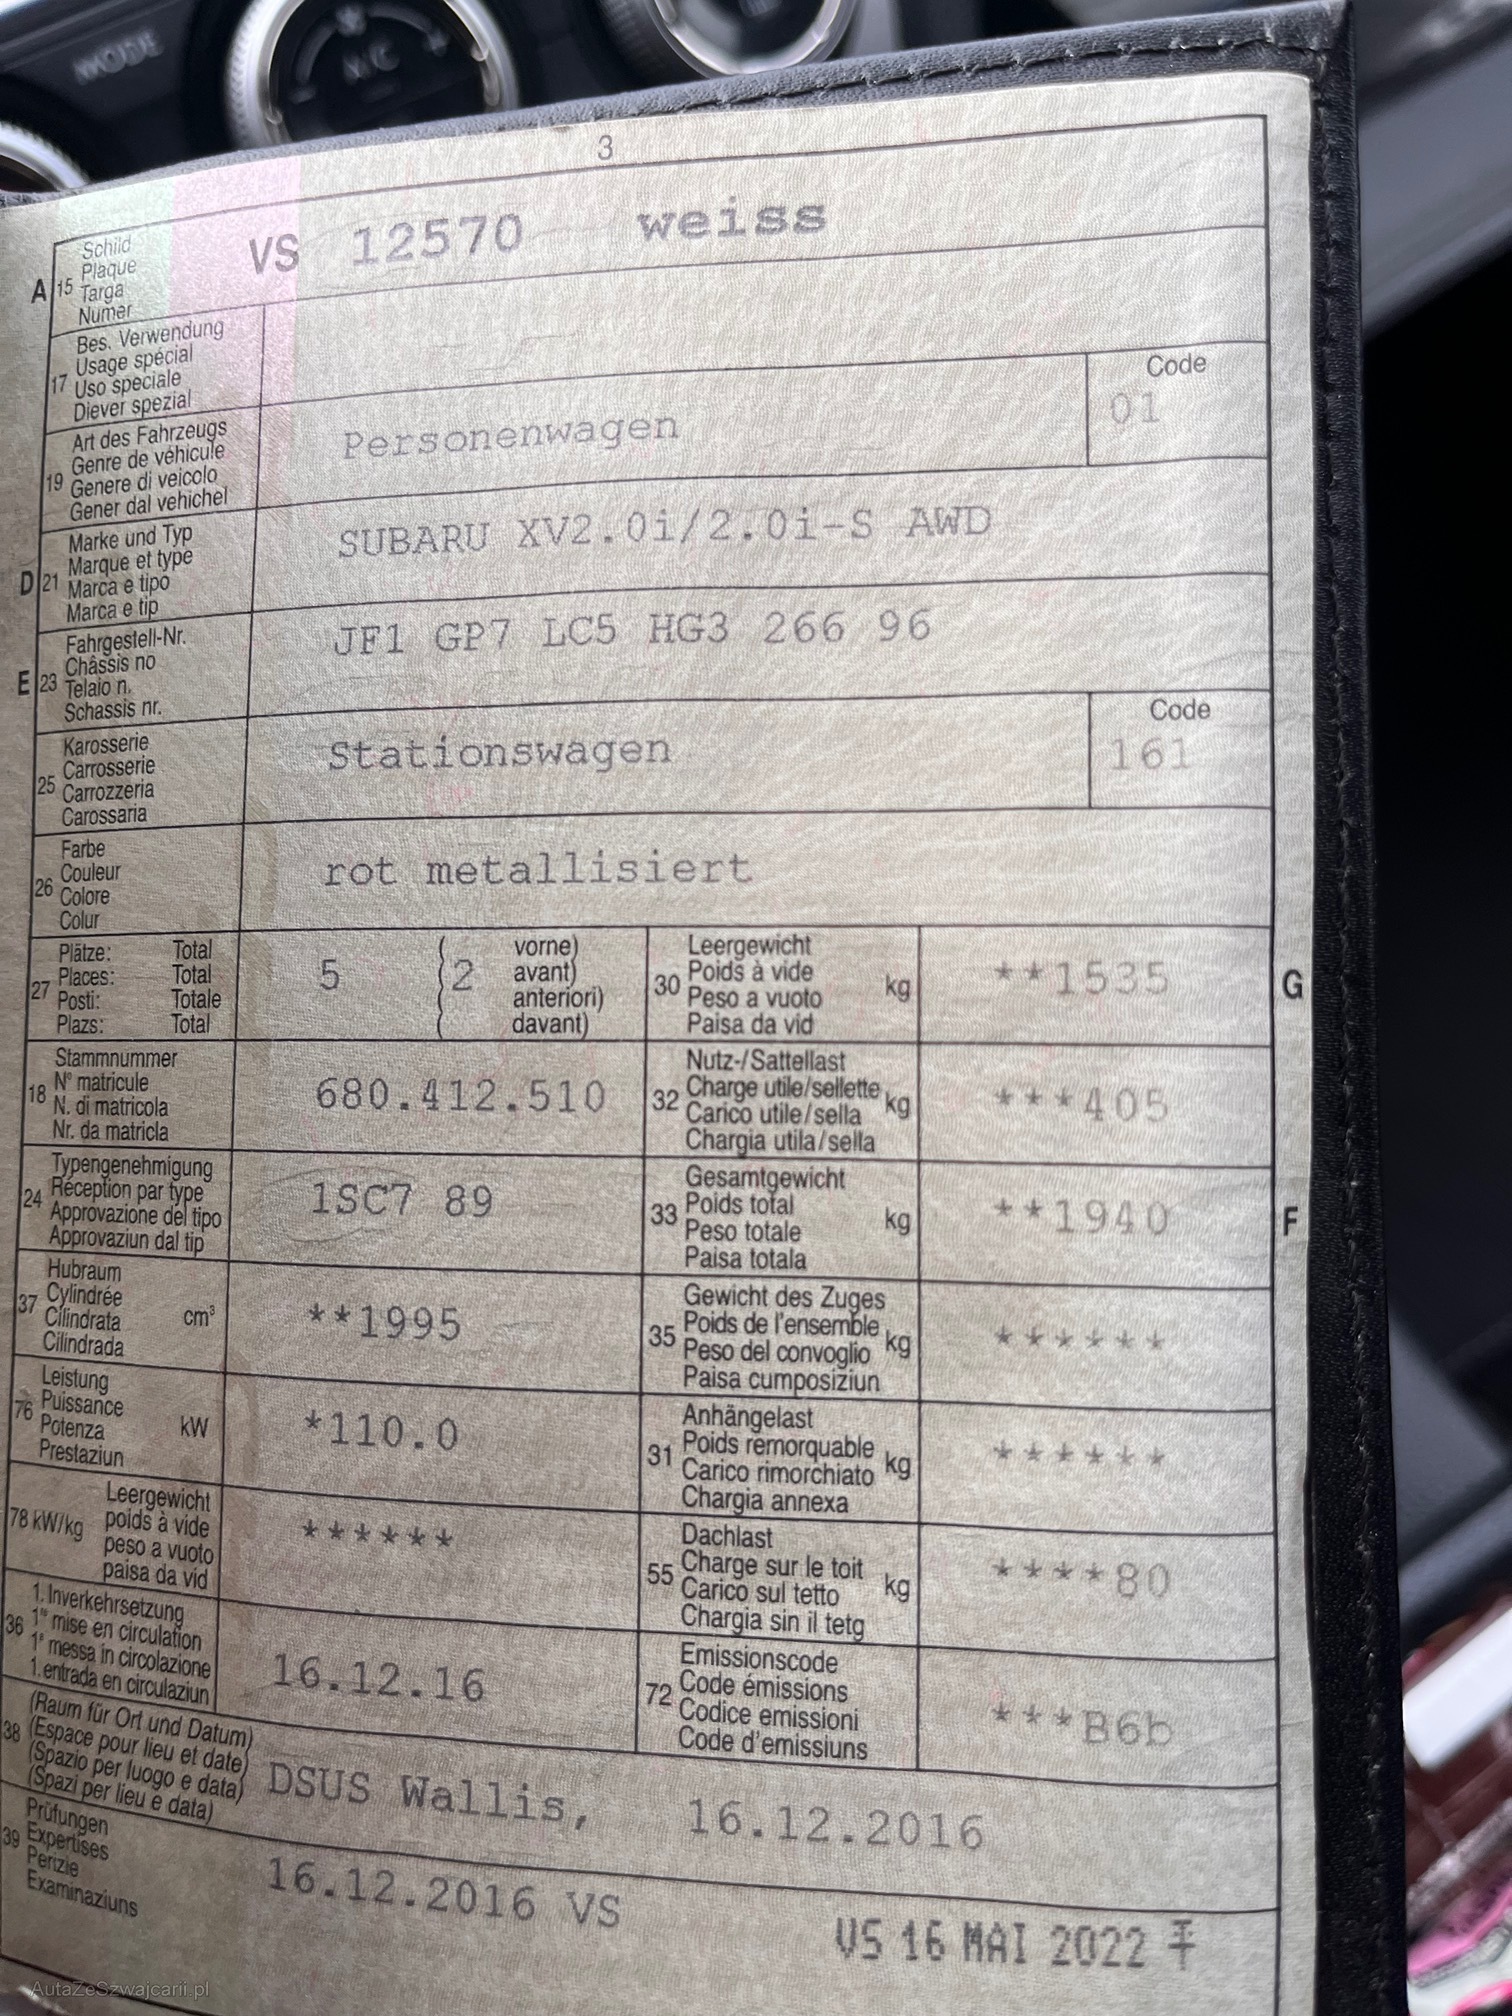 MODE
A/C
3
A 15 Schild
Plaque
Targa
Numer
VS 12570 weiss
17 Bes. Verwendung
Usage spécial
Uso speciale
Diever spezial
19 Art des Fahrzeugs
Genre de véhicule
Genere di veicolo
Gener dal vehichel
Personenwagen
Code
01
D 21 Marke und Typ
Marque et type
Marca e tipo
Marca e tip
SUBARU XV2.0i/2.0i-S AWD
E 23 Fahrgestell-Nr.
Châssis no
Telaio n.
Schassis nr.
JF1 GP7 LC5 HG3 266 96
25 Karosserie
Carrosserie
Carrozzeria
Carossaria
Stationswagen
Code
161
26 Farbe
Couleur
Colore
Colur
rot metallisiert
27 Plätze: Total
Places: Total
Posti: Totale
Plazs: Total
5 ( 2 vorne)
( avant)
( anteriori)
( davant)
30 Leergewicht
Poids à vide kg
Peso a vuoto
Paisa da vid
**1535
G
18 Stammnummer
N° matricule
N. di matricola
Nr. da matricla
680.412.510
32 Nutz-/Sattellast
Charge utile/sellette kg
Carico utile/sella
Chargia utila/sella
***405
24 Typengenehmigung
Réception par type
Approvazione del tipo
Approvaziun dal tip
1SC7 89
33 Gesamtgewicht
Poids total kg
Peso totale
Paisa totala
**1940
F
37 Hubraum
Cylindrée
Cilindrata cm³
Cilindrada
**1995
35 Gewicht des Zuges
Poids de l'ensemble kg
Peso del convoglio
Paisa cumposiziun
******
76 Leistung
Puissance
Potenza kW
Prestaziun
*110.0
31 Anhängelast
Poids remorquable kg
Carico rimorchiato
Chargia annexa
******
78 kW/kg Leergewicht
poids à vide
peso a vuoto
paisa da vid
******
55 Dachlast
Charge sur le toit kg
Carico sul tetto
Chargia sin il tetg
****80
36 1. Inverkehrsetzung
1re mise en circulation
1a messa in circolazione
1. entrada en circulaziun
16.12.16
72 Emissionscode
Code émissions
Codice emissioni
Code d'emissiuns
***B6b
38 (Raum für Ort und Datum)
(Espace pour lieu et date)
(Spazio per luogo e data)
(Spazi per lieu e data)
DSUS Wallis, 16.12.2016
39 Prüfungen
Expertises
Perizie
Examinaziuns
16.12.2016 VS
VS 16 MAI 2022
AutaZeSzwajcarii.pl